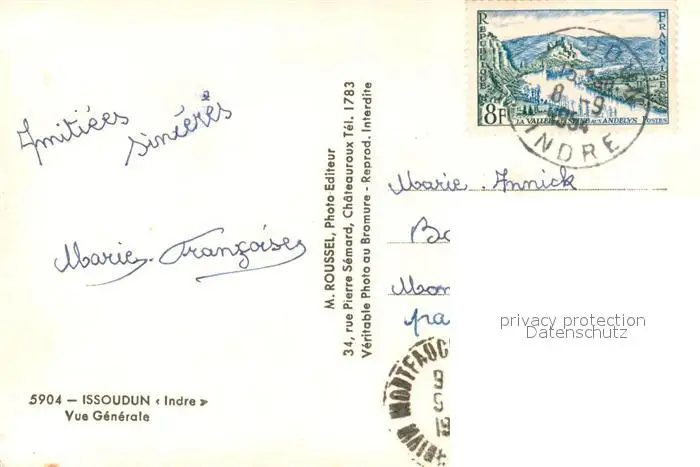 Amitiées
sincères
Marie-Françoise
5904 — ISSOUDUN « Indre »
Vue Générale
M. ROUSSEL, Photo Editeur
34, rue Pierre Sémard, Châteauroux Tél. 1783
Véritable Photo au Bromure - Reprod. Interdite
REPUBLIQUE
FRANÇAISE
8F
LA VALLÉE DE LA SEINE AUX ANDELYS POSTES
8 - 9
1954
INDRE
Marie-Annick
privacy protection
Datenschutz